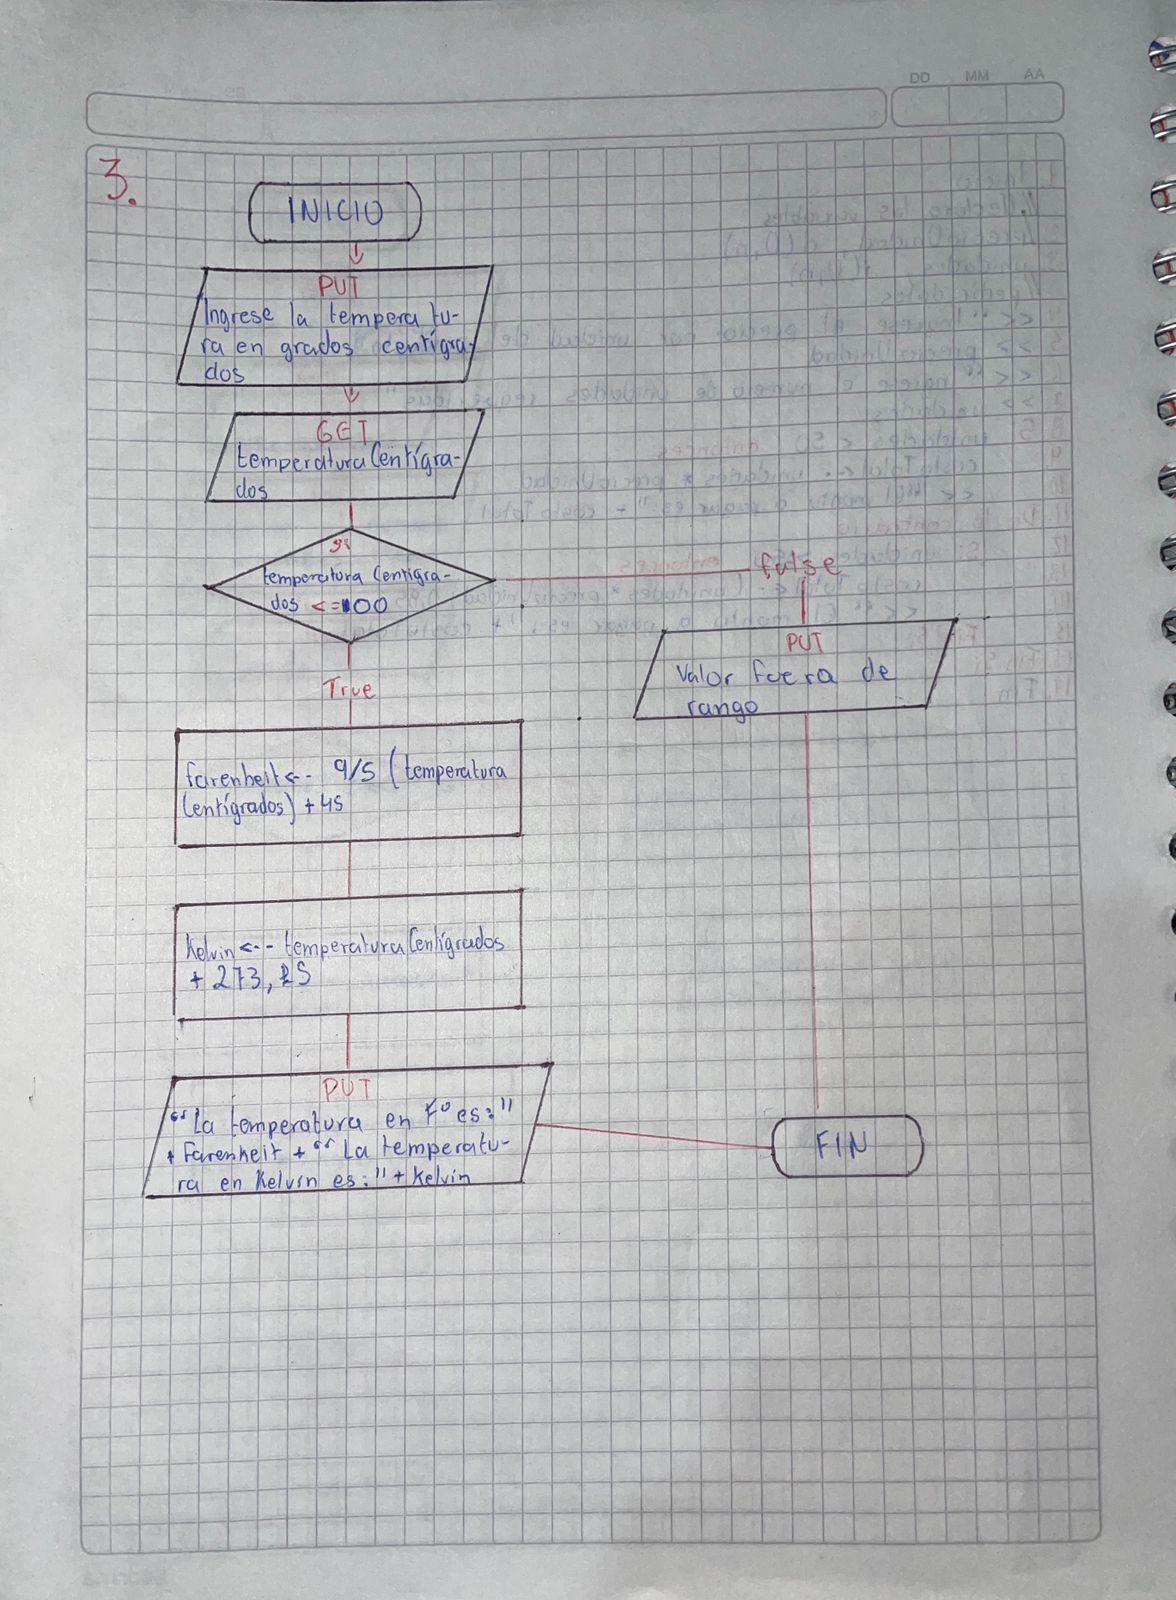 DD MM AA
3.
INICIO
PUT
Ingrese la tempera tu-
ra en grados centígra-
dos
GET
temperaturaCentígra-
dos
si
temperatura Centígra-
dos <=100
false
PUT
Valor fuera de
rango
True
farenheit<-- 9/5 (temperatura
Centígrados) + 45
Kelvin <-- temperaturaCentígrados
+ 273, 15
PUT
"La temperatura en F° es:"
+ Farenheit + "La temperatu-
ra en Kelvin es:" + Kelvin
FIN